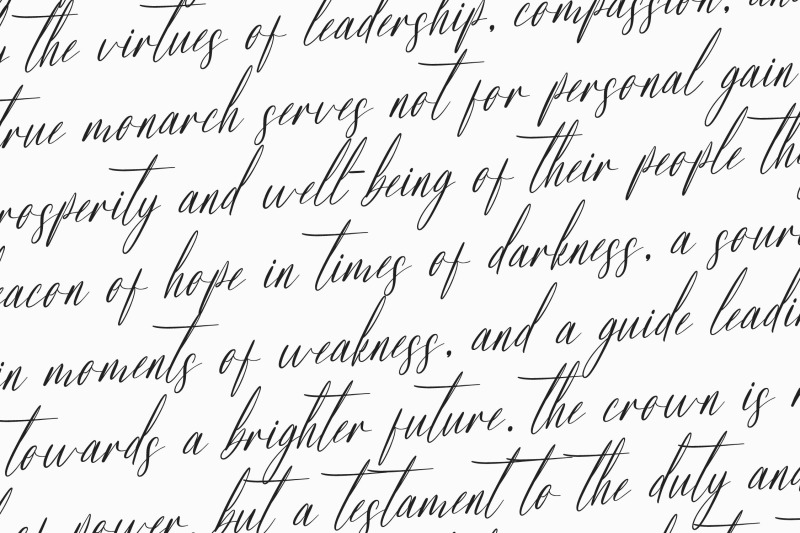 the virtues of leadership, compassion, and
true monarch serves not for personal gain
prosperity and well-being of their people
beacon of hope in times of darkness, a
in moments of weakness, and a guide
towards a brighter future. the crown is
of power, but a testament to the duty and